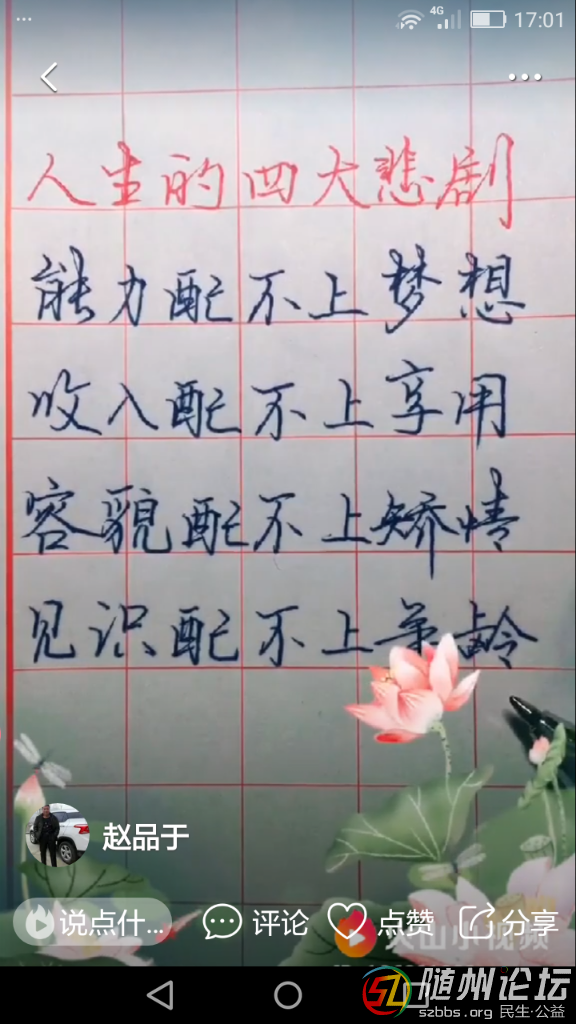 4G 17:01
人生的四大悲剧
能力配不上梦想
收入配不上享用
容貌配不上矫情
见识配不上年龄
赵品于
说点什...
评论
点赞
分享
火山小视频
随州论坛
szbbs.org 民生·公益